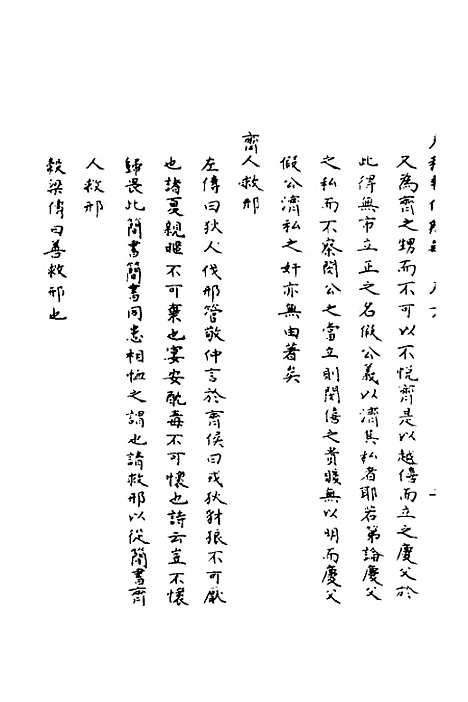 又為齊之甥而不可以不悅齊是以越僖而立之慶父於
此得無市立正之名假公義以濟其私者耶若第論慶父
之私而不察閔公之當立則閔僖之貴賤無以明而慶父
假公濟私之奸亦無由著矣
齊人救邢
左傳曰狄人伐邢管敬仲言於齊侯曰戎狄豺狼不可厭
也諸夏親暱不可棄也宴安酖毒不可懷也詩云豈不懷
歸畏此簡書簡書同惡相恤之謂也請救邢以從簡書齊
人救邢
穀梁傳曰善救邢也